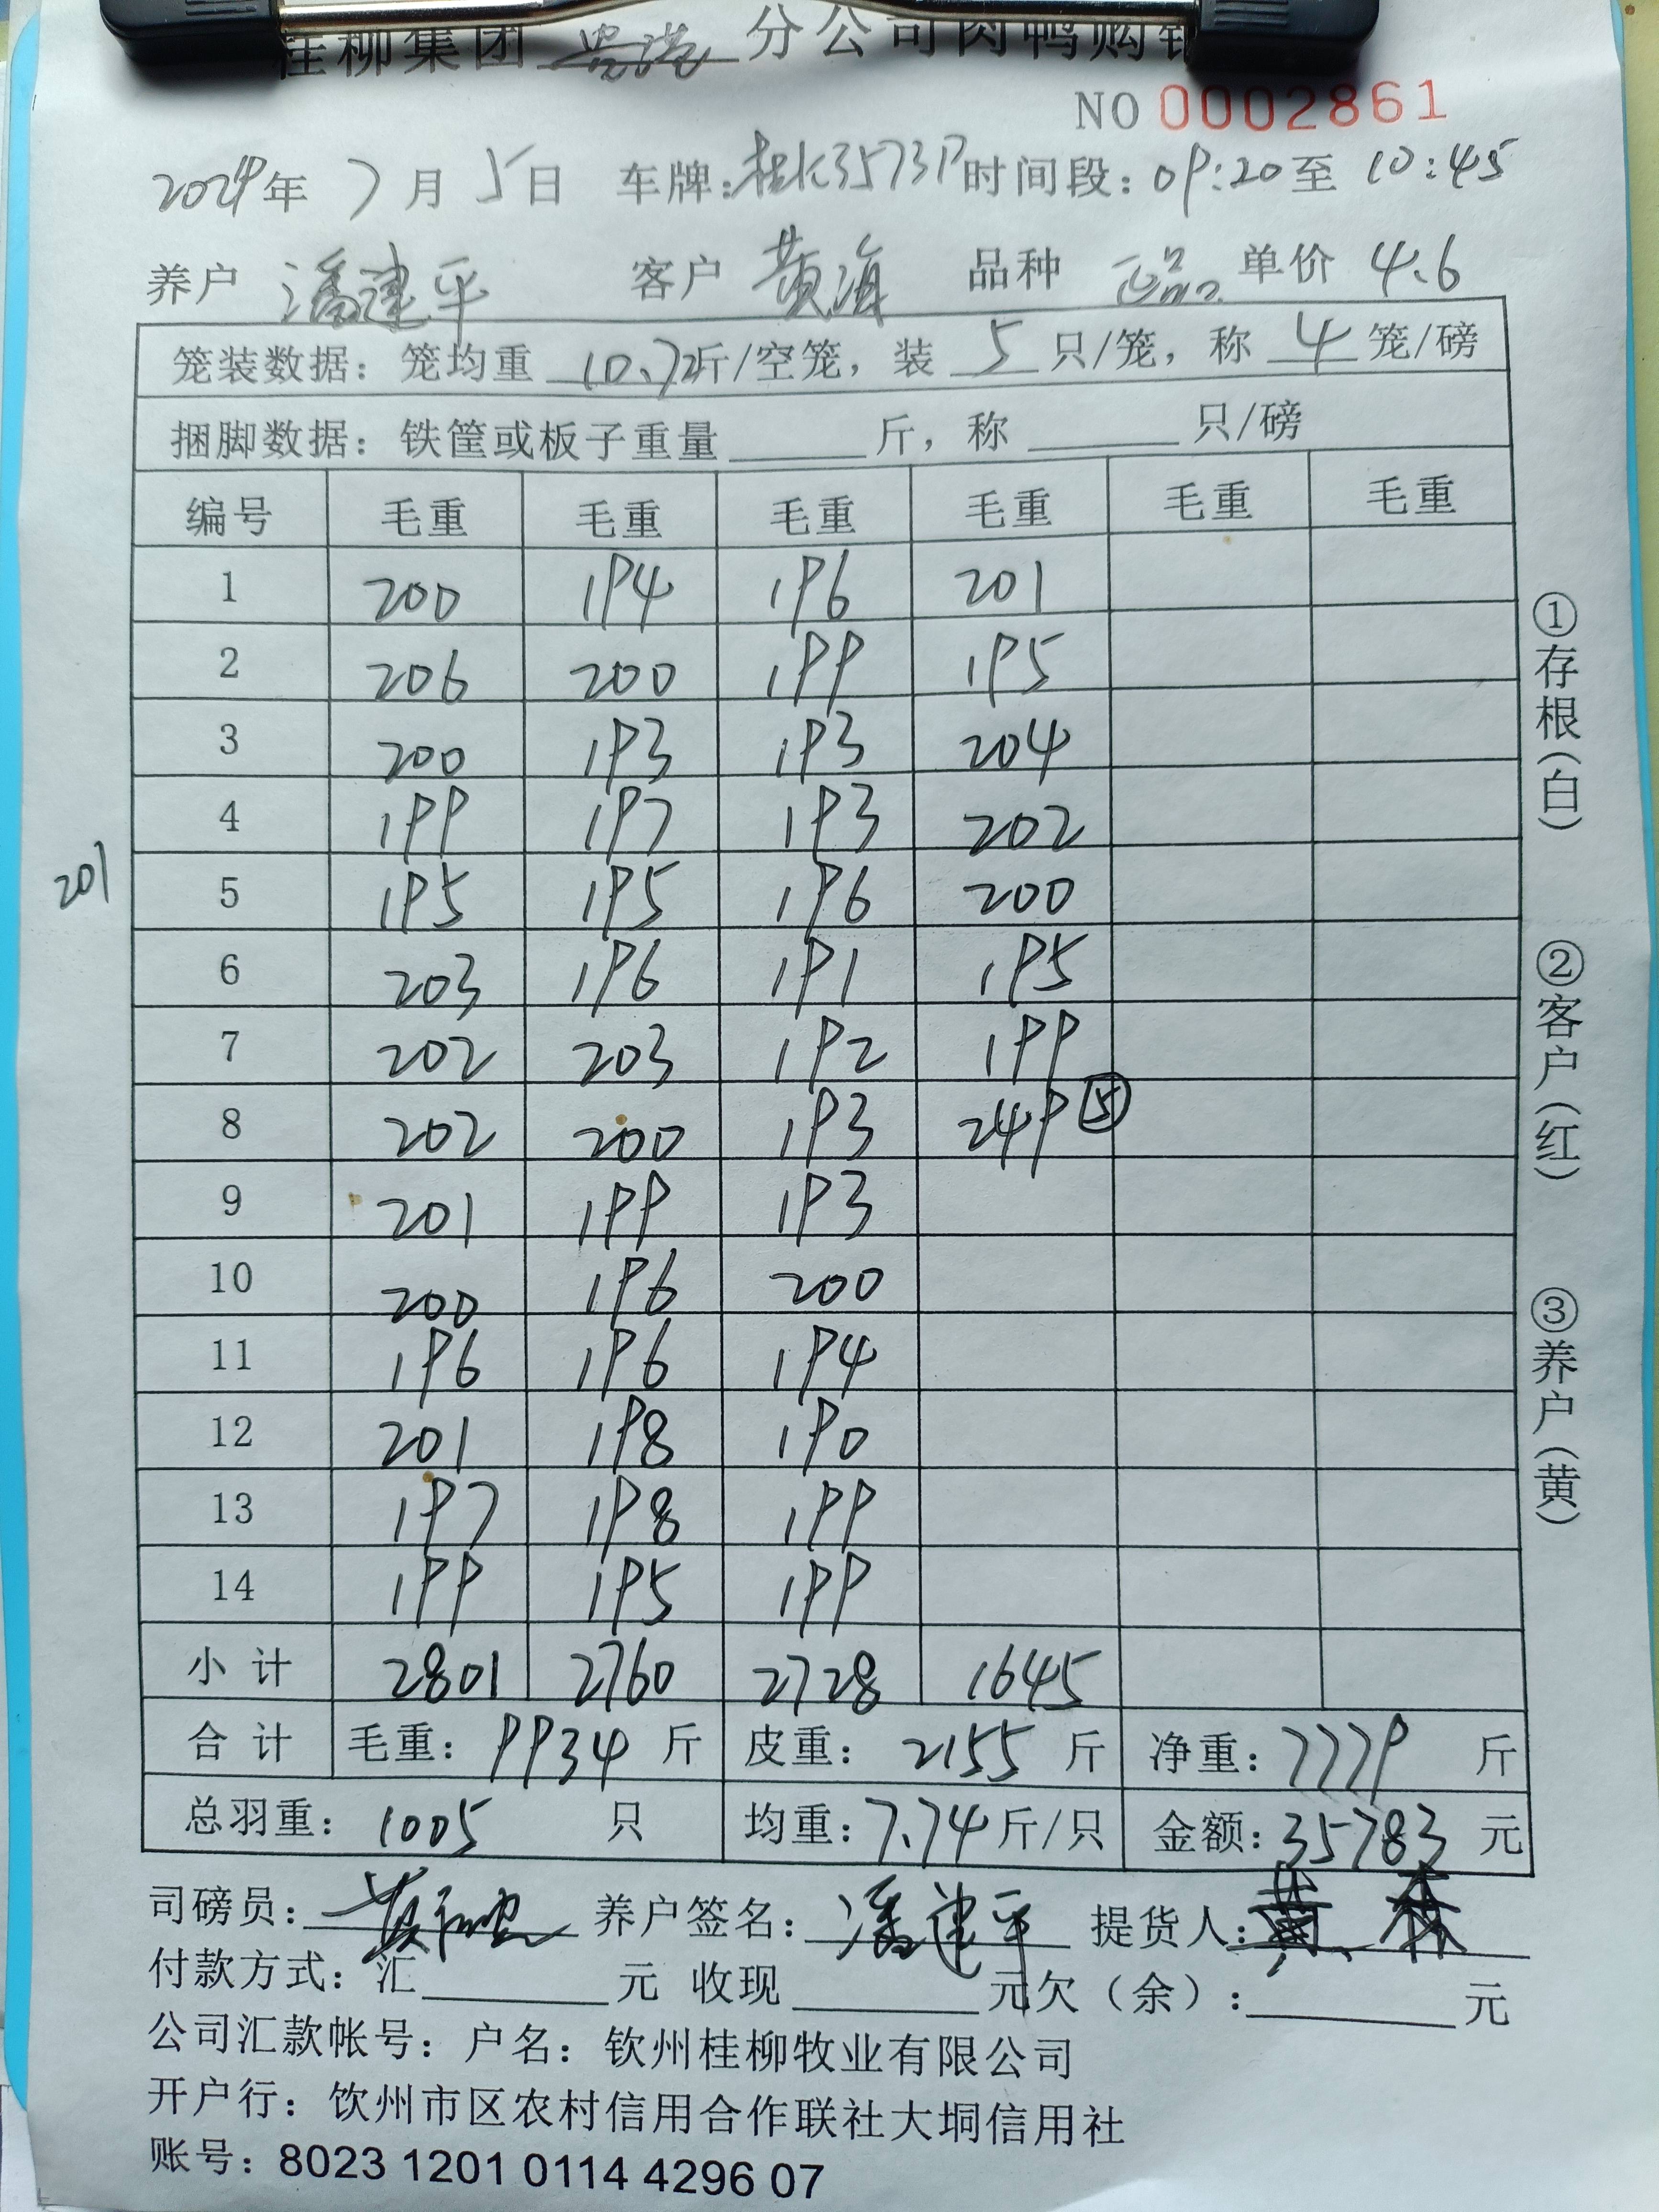 桂柳集团 贵港 分公司肉鸭购销
NO 0002861
2024年 7月 5日 车牌:桂K3573P 时间段:09:20至 10:45
养户 潘建平 客户 黄海 品种 正品 单价 4.6
笼装数据:笼均重 10.72斤/空笼,装 5 只/笼,称 4 笼/磅
捆脚数据:铁筐或板子重量______斤,称______只/磅
编号 毛重 毛重 毛重 毛重 毛重 毛重
1 200 194 196 201
2 206 200 199 195
3 200 193 193 204
4 199 197 193 202
201
5 195 195 196 200
6 203 196 191 195
7 202 203 192 199
8 202 200 193 249 ⑤
9 201 199 193
10 200 196 200
11 196 196 194
12 201 198 190
13 197 198 199
14 199 195 199
小计 2801 2760 2728 1645
合计 毛重:9934 斤 皮重:2155 斤 净重:7779 斤
总羽重:1005 只 均重:7.74斤/只 金额:35783 元
司磅员: 养户签名:潘建平 提货人:黄
付款方式:汇______元 收现______元欠(余):______元
公司汇款帐号:户名:钦州桂柳牧业有限公司
开户行:饮州市区农村信用合作联社大垌信用社
账号:8023 1201 0114 4296 07
①存根(白)
②客户(红)
③养户(黄)